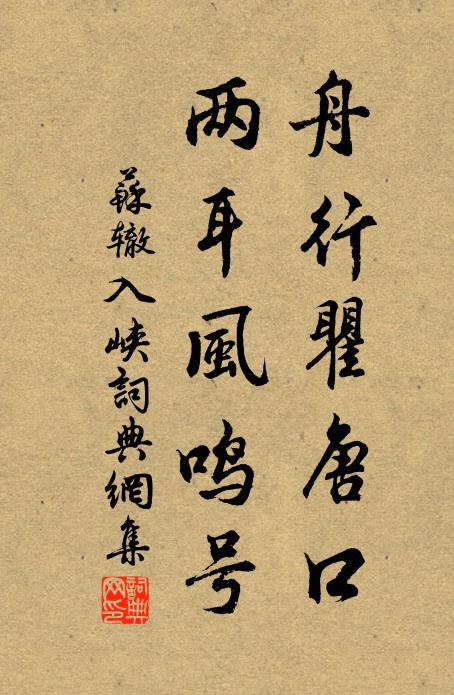 舟行瞿唐口
两耳風鸣号
蘇辙入峡詞典網集
詞典网印